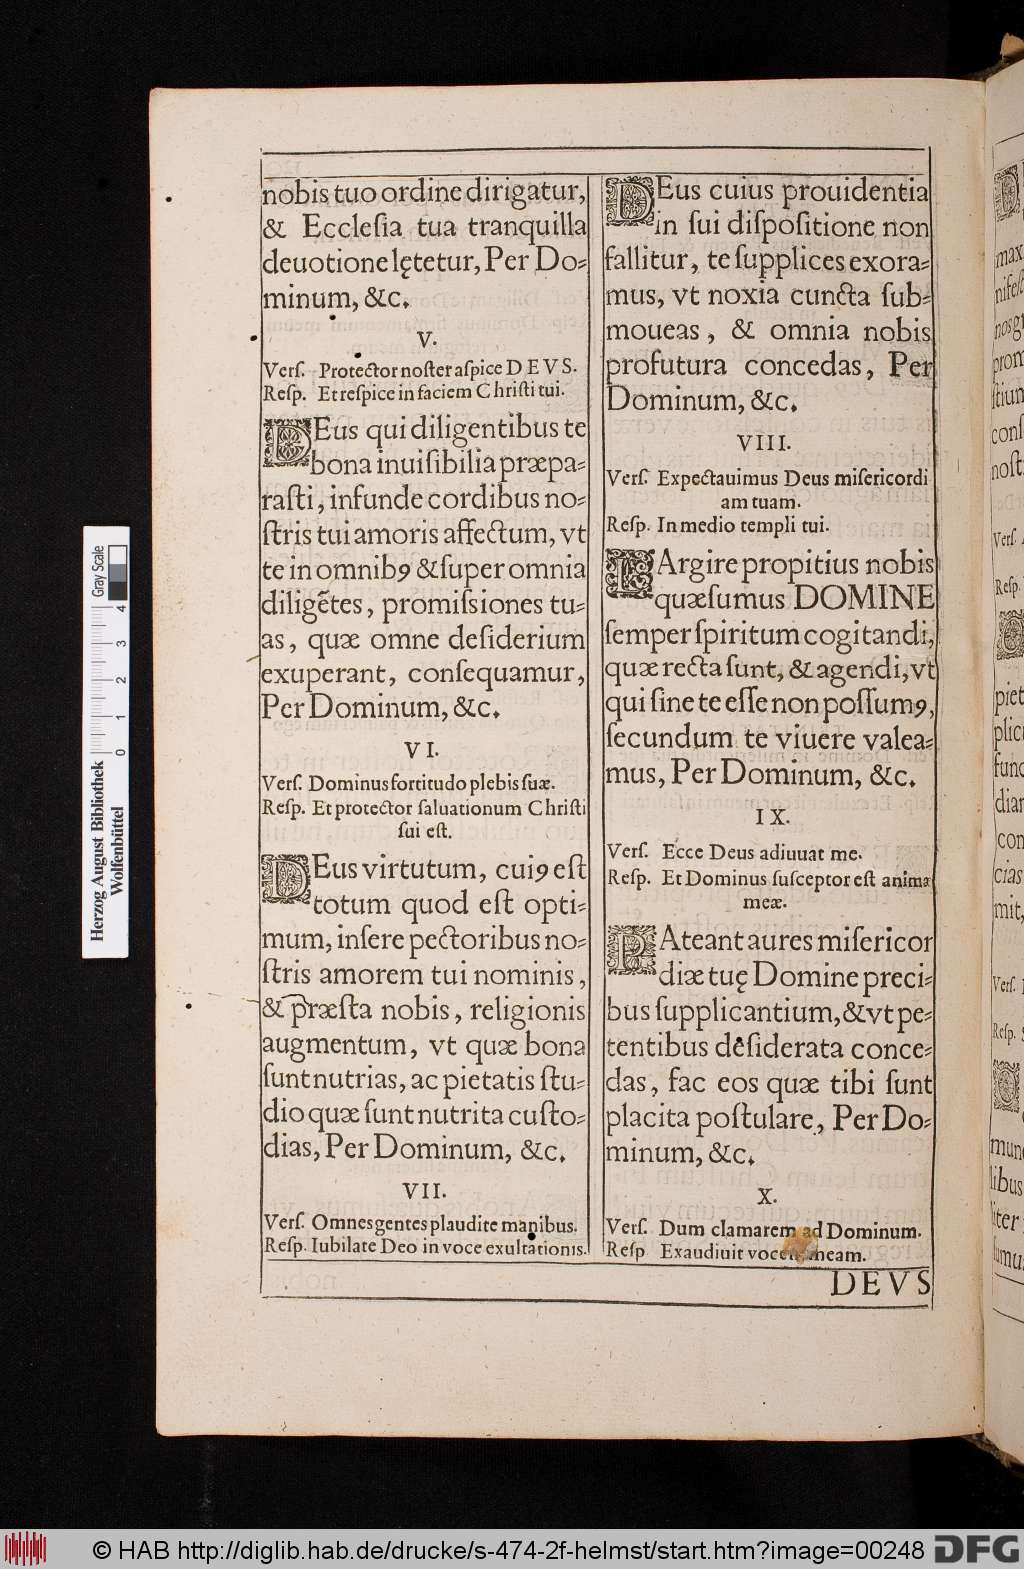 nobis tuo ordine dirigatur,
& Eccleſia tua tranquilla
deuotione lętetur, Per Do-
minum, &c.
V.
Verſ. Protector noſter aſpice DEVS.
Reſp. Et reſpice in faciem Chriſti tui.
DEus qui diligentibus te
bona inuiſibilia præpa-
raſti, infunde cordibus no-
ſtris tui amoris affectum, vt
te in omnibꝰ & ſuper omnia
diligẽtes, promiſsiones tu-
as, quæ omne deſiderium
exuperant, conſequamur,
Per Dominum, &c.
VI.
Verſ. Dominus fortitudo plebis ſuæ.
Reſp. Et protector ſaluationum Chriſti
ſui eſt.
DEus virtutum, cuiꝰ eſt
totum quod eſt opti-
mum, inſere pectoribus no-
ſtris amorem tui nominis,
& præſta nobis, religionis
augmentum, vt quæ bona
ſunt nutrias, ac pietatis ſtu-
dio quæ ſunt nutrita cuſto-
dias, Per Dominum, &c.
VII.
Verſ. Omnes gentes plaudite manibus.
Reſp. Iubilate Deo in voce exultationis.
DEus cuius prouidentia
in ſui diſpoſitione non
fallitur, te ſupplices exora-
mus, vt noxia cuncta ſub-
moueas, & omnia nobis
profutura concedas, Per
Dominum, &c.
VIII.
Verſ. Expectauimus Deus miſericordi
am tuam.
Reſp. In medio templi tui.
LArgire propitius nobis
quæſumus DOMINE
ſemper ſpiritum cogitandi,
quæ recta ſunt, & agendi, vt
qui ſine te eſſe non poſſumꝰ,
ſecundum te viuere valea-
mus, Per Dominum, &c.
IX.
Verſ. Ecce Deus adiuuat me.
Reſp. Et Dominus ſuſceptor eſt animæ
meæ.
PAteant aures miſericor
diæ tuę Domine preci-
bus ſupplicantium, & vt pe-
tentibus deſiderata conce-
das, fac eos quæ tibi ſunt
placita poſtulare, Per Do-
minum, &c.
X.
Verſ. Dum clamarem ad Dominum.
Reſp. Exaudiuit vocem meam.
DEVS
max
noſ
prom
ſtiun
conſ
noſt
Verſ.
Reſp.
piet
plic
func
diar
con
cias
mit,
Verſ.
Reſp.
mun
libus
liter
ſumu
Herzog August Bibliothek
Wolfenbüttel
0 1 2 3 4
Gray Scale
© HAB http://diglib.hab.de/drucke/s-474-2f-helmst/start.htm?image=00248
DFG